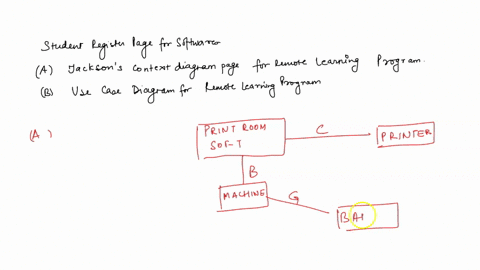 Student Register Page for Software
(A) Jackson's Context diagram page for Remote Learning Program.
(B) Use Case Diagram for Remote Learning Program
(A)
PRINT ROOM
SOFT
C
PRINTER
B
MACHINE
G
BAI